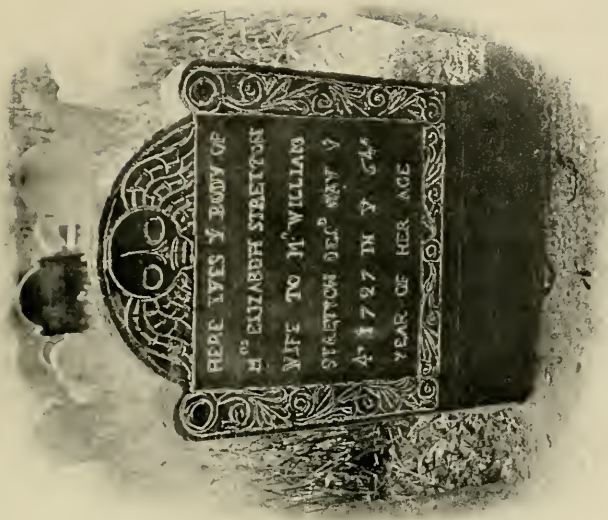 HERE LYES Yͤ BODY OF
Mʳˢ ELIZABETH STRETTON
WIFE TO Mʳ WILLIAM
STRETTON DECᴰ MAY Yͤ
4ᵗʰ 1727 IN Yͤ 64ᵗʰ
YEAR OF HER AGE